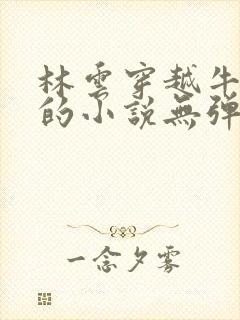 林雲穿越牛
的小說無弹
一念夕雾